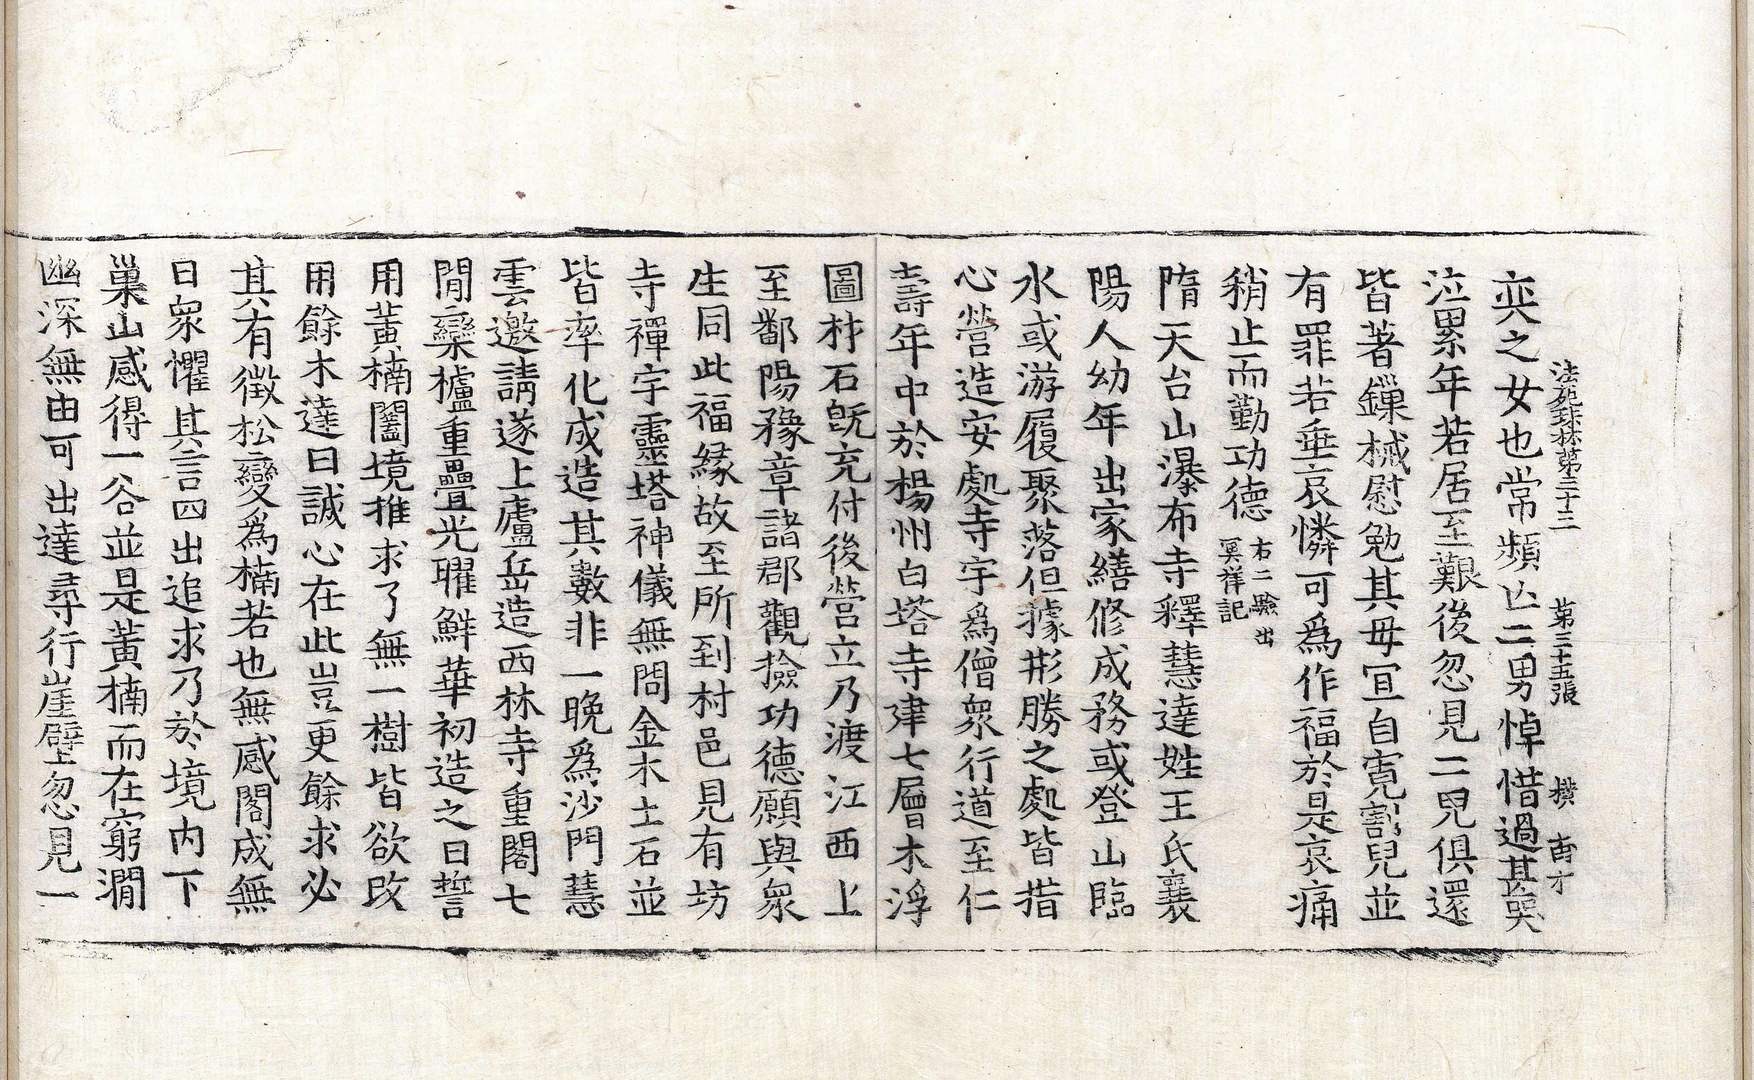 法苑珠林第三十三　第三十五張　橫　南才
奕之女也常頻亡二男悼惜過甚哭
泣累年若居至艱後忽見二兒俱還
皆著鏁械慰勉其母宜自寬割兒並
有罪若垂哀憐可爲作福於是哀痛
稍止而勤功德右二驗出
冥祥記
隋天台山瀑布寺釋慧達姓王氏襄
陽人幼年出家繕修成務或登山臨
水或游履聚落但據形勝之處皆措
心營造安處寺宇爲僧衆行道至仁
壽年中於楊州白塔寺建七層木浮
圖材石旣充付後營立乃渡江西上
至鄱陽豫章諸郡觀撿功德願與衆
生同此福緣故至所到村邑見有坊
寺禪宇靈塔神儀無問金木土石並
皆率化成造其數非一晚爲沙門慧
雲邀請遂上廬岳造西林寺重閣七
閒欒櫨重疊光曜鮮華初造之日誓
用黃楠闔境推求了無一樹皆欲改
用餘木達曰誠心在此豈更餘求必
其有徵松變爲楠若也無感閣成無
日衆懼其言四出追求乃於境內下
巢山感得一谷並是黃楠而在窮澗
幽深無由可出達尋行崖壁忽見一